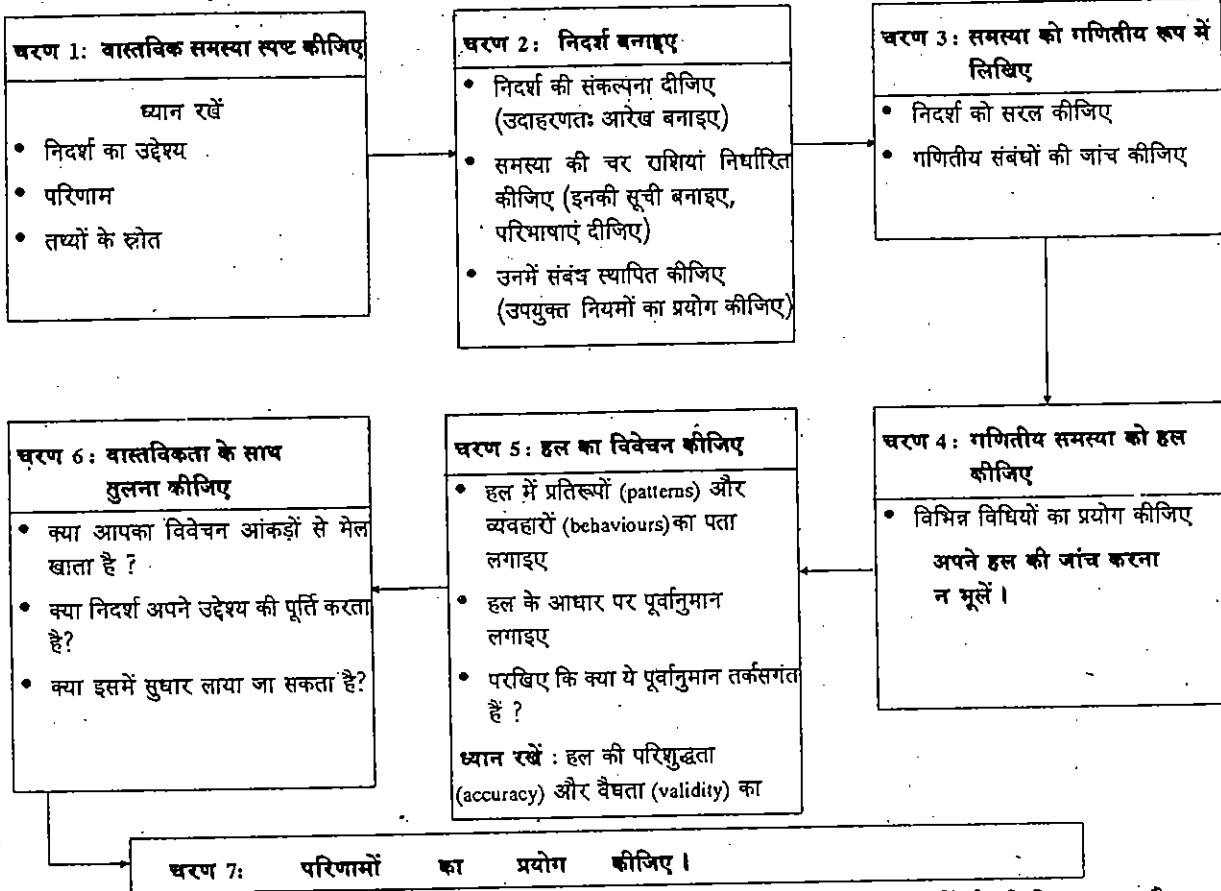 चरण 1: वास्तविक समस्या स्पष्ट कीजिए
ध्यान रखें
• निदर्श का उद्देश्य
• परिणाम
• तथ्यों के स्रोत
चरण 2: निदर्श बनाइए
• निदर्श की संकल्पना दीजिए
(उदाहरणतः आरेख बनाइए)
• समस्या की चर राशियां निर्धारित
कीजिए (इनकी सूची बनाइए,
परिभाषाएं दीजिए)
• उनमें संबंध स्थापित कीजिए
(उपयुक्त नियमों का प्रयोग कीजिए)
चरण 3: समस्या को गणितीय रूप में
लिखिए
• निदर्श को सरल कीजिए
• गणितीय संबंधों की जांच कीजिए
चरण 4: गणितीय समस्या को हल
कीजिए
• विभिन्न विधियों का प्रयोग कीजिए
अपने हल की जांच करना
न भूलें।
चरण 5: हल का विवेचन कीजिए
• हल में प्रतिरूपों (patterns) और
व्यवहारों (behaviours) का पता
लगाइए
• हल के आधार पर पूर्वानुमान
लगाइए
• परखिए कि क्या ये पूर्वानुमान तर्कसगंत
हैं ?
ध्यान रखें : हल की परिशुद्धता
(accuracy) और वैधता (validity) का
चरण 6: वास्तविकता के साथ
तुलना कीजिए
• क्या आपका विवेचन आंकड़ों से मेल
खाता है ?
• क्या निदर्श अपने उद्देश्य की पूर्ति करता
है?
• क्या इसमें सुधार लाया जा सकता है?
चरण 7: परिणामों का प्रयोग कीजिए।